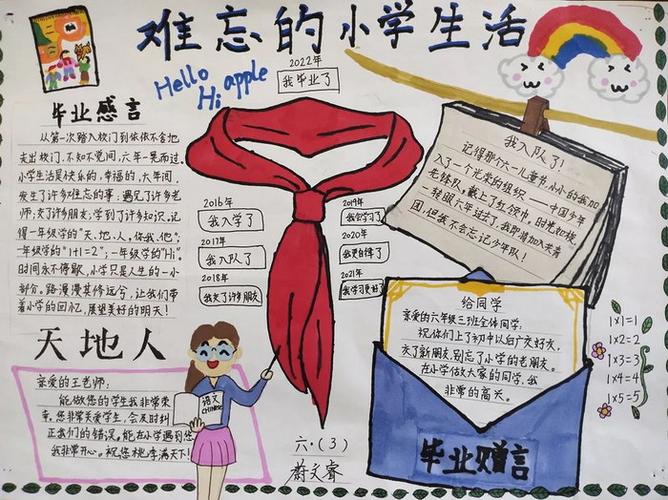 难忘的小学生活
Hello
Hi apple
毕业感言
从第一次踏入校门到依依不舍地
走出校门,不知不觉间,六年一晃而过,
小学生活是快乐的,幸福的,六年间,
发生了许多难忘的事:遇见了许多老
师,交了许多朋友,学到了许多知识,记
得一年级学的“天,地,人,你,我,他”;
一年级学的“1+1=2”;一年级学的“Hi”。
时间永不停歇,小学只是人生的一小
部分,路漫漫其修远兮,让我们带
着小学的回忆,展望美好的明天!
2022年
我毕业了
2016年
我入学了
2017年
我入队了
2018年
我交了许多朋友
2019年
我会学习了
2020年
我更自律了
2021年
我学习更好了
我入队了!
记得那个六一儿童节,小小的我加
入了一个光荣的组织——中国少年
先锋队,戴上了红领巾,时光如梭,
一转眼六年过去了,我即将加入共青
团,但我不会忘记少年队!
天地人
亲爱的王老师:
能做您的学生我非常荣
幸,您非常关爱学生,会及时纠
正我们的错误,能在小学遇到您
我非常开心。祝您桃李满天下!
语文
CHINESE
六·(3)
蔚文睿
给同学
亲爱的六年级三班全体同学:
祝你们上了初中以后广交好友,
交了新朋友,别忘了小学的老朋友。
在小学做大家的同学,我
非常的高兴。
毕业赠言
1×1=1
1×2=2
1×3=3
1×4=4
1×5=5